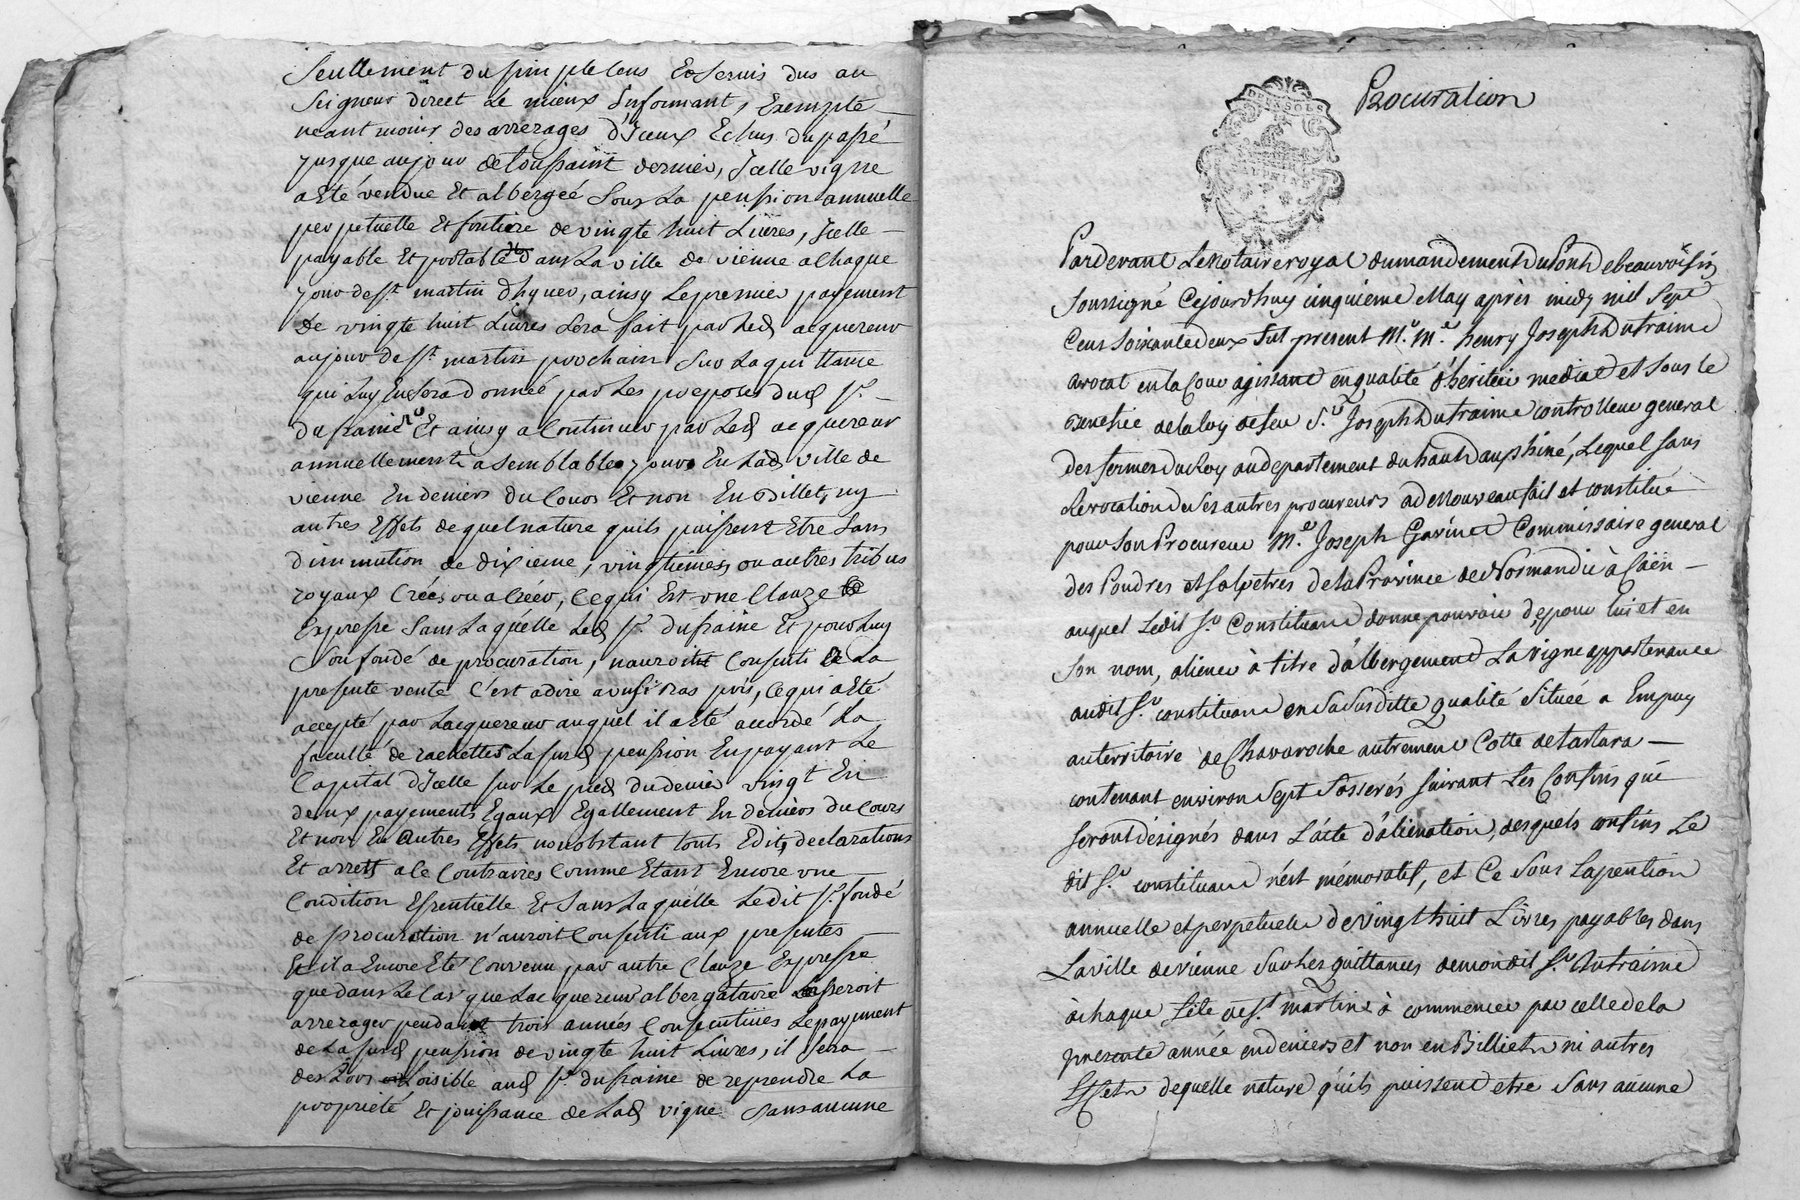 Seullement du simple Cens Et Servis dus au
Seigneur direct Le mieux Informant, Exempte
neant moins des arrerages d'Iceux Echus du passé
jusque au jour de toussaint dernier, Icelle vigne
a Eté vendue Et albergeé Sous La pension annuelle
perpetuelle Et fonciere de vingte huit Livres, Icelle
payable Et portable dans La ville de vienne a Chaque
jour de st martin dhyver, ainsy Le premier payement
de vingte huit Livres Sera fait par Led acquereur
au jour de st martin prochain Sur La quittance
qui Luy En Sera donnée par Les preposés dud sr
dufraine Et ainsy a Continuer par Led acquereur
annuellement a Semblable jour En Lad ville de
vienne En deniers du Cours Et non En Billet, ny
autres Effets de quel nature quils puissent Etre Sans
diminution de dixieme, vingtiemes, ou autres tribus
royaux Créés ou a Créér, Ce qui Est une Clauze
Expresse Sans La quelle Led sr dufraine Et pour Luy
Son fondé de procuration, n'auroint Consenti La
presente vente C'est adire a un Si bas pris, Ce qui a Eté
accepté par Lacquereur auquel il a Eté accordé La
faculté de rachetter La Susd pension En payant Le
Capital d'Icelle sur Le pied du denier vingt En
deux payements Egaux Egallement En deniers du Cours
Et non En autres Effets nonobstant touts Edits, declarations
Et arrets a Ce Contraires Comme Etant Encore une
Condition Essentielle Et Sans La quelle Le dit sr fondé
de procuration n'auroit Consenti aux presentes
Et il a Encore Eté Convenu par autre Clauze Expresse
que dans Le Cas que Lacquereur albergataire Laisseroit
arrerager pendant trois années Consecutives Le payement
de La Susd pension de vingte huit Livres, il Sera
des Lors Loisible aud sr dufraine de reprendre La
propriété Et jouissance de Lad vigne Sans aucune
Procuration
DEUX SOLS
DAUPHINÉ
Pardevant Le Notaire royal du mandement du Pont de beauvoisin
Soussigné Cejourdhuy cinquieme May après midy mil Sept
Cent Soixante deux Fut present Mr Me henry Joseph Dutraine
avocat en la Cour agissant en qualité d'heritier mediat et sous le
benefice de la loy de feu Sr Joseph Dutraine controlleur general
des fermes du Roy au departement du haut dauphiné, Lequel sans
Revocation de Ses autres procureurs a de Nouveau fait et constitué
pour Son Procureur Me Joseph Gavinet Commissaire general
des Poudres et Salpetres de la Province de Normandie à Caën
auquel Ledit Sr Constituant donne pouvoir de, pour lui et en
Son nom, aliener à titre d'albergement La vigne appartenante
audit Sr constituant en Sa Susditte qualité Située a Empuy
au territoire de Chavaroche autrement Cotte de tartara
contenant environ Sept fosserés suivant Les Confins qui
seront désignés dans L'acte d'alienation, desquels confins Le
dit Sr constituant n'est mémoratif, et Ce Sous La pention
annuelle et perpetuelle de vingt huit Livres payables dans
La ville de vienne Sur Les quittances de mondit Sr Dutraine
à chaque fête de St martin à commencer par celle de la
presente année en deniers et non en Billiets ni autres
Effets de quelle nature qu'ils puissent etre Sans aucune